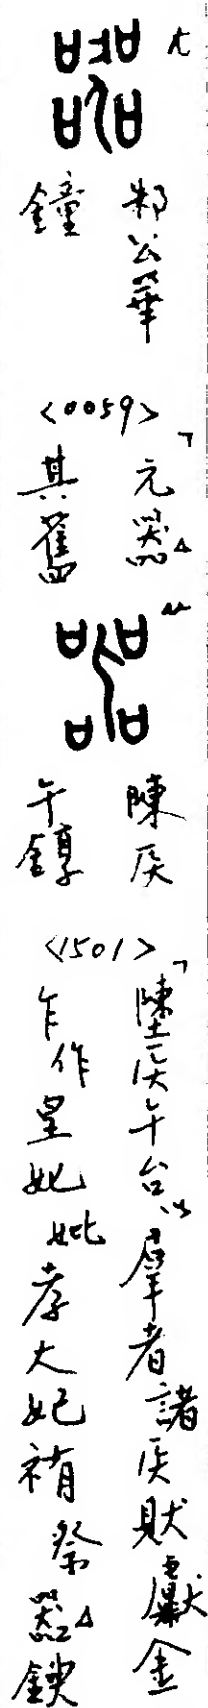 七
邾公華
鐘
<0059>
「元器△
其舊
八
陳侯
午錞
<1501>
「塦侯午台以羣者諸侯獻金
乍作皇妣孝大妃祭器△